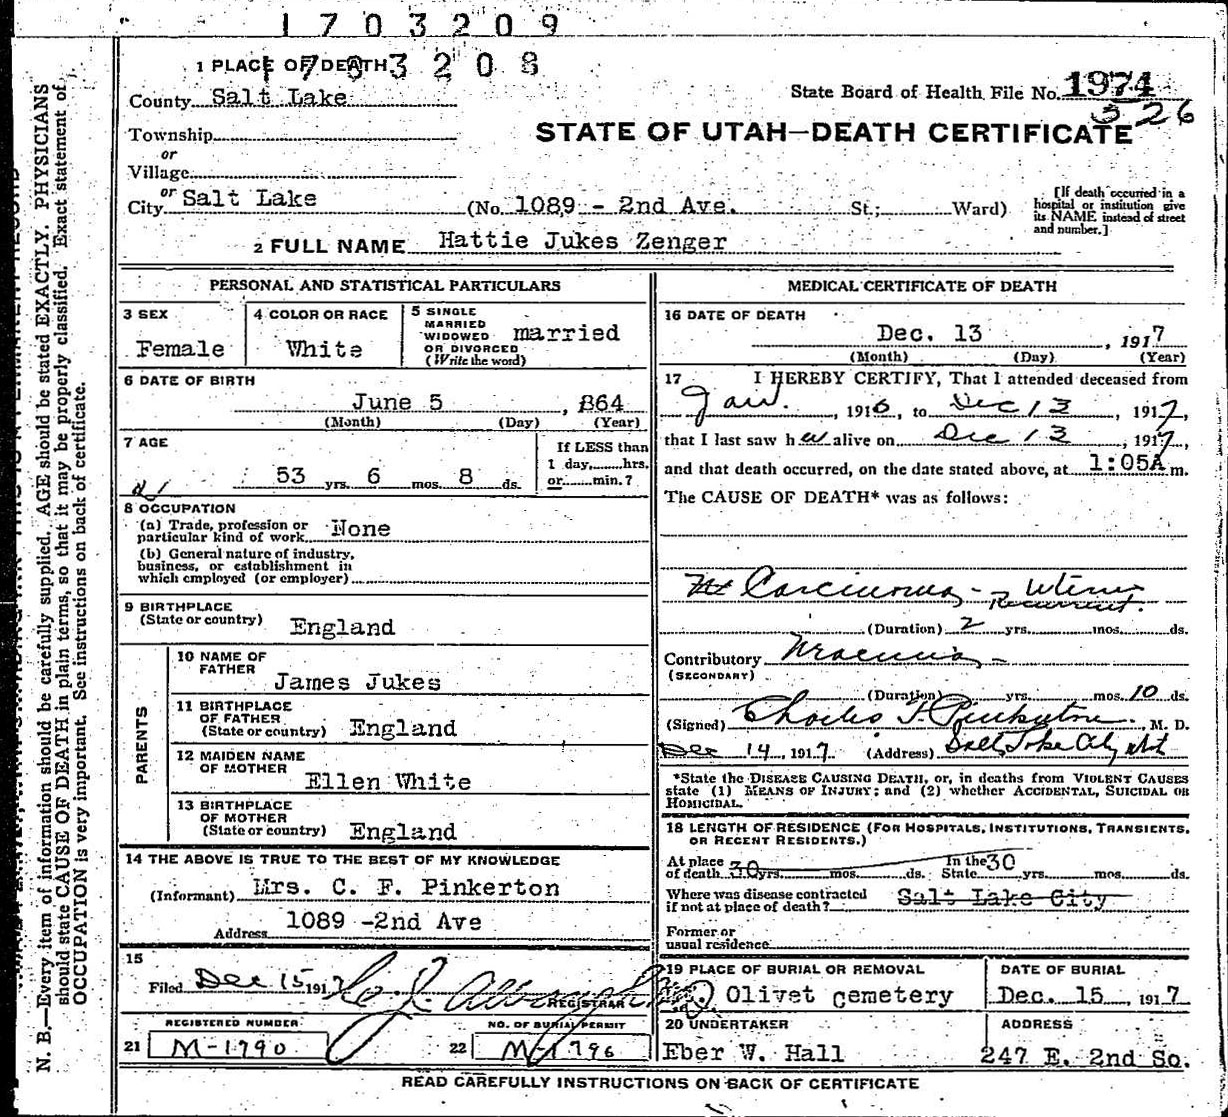 1703209
1703208
1 PLACE OF DEATH
County Salt Lake
State Board of Health File No. 1974
326
STATE OF UTAH—DEATH CERTIFICATE
Township
or
Village
or
City Salt Lake (No. 1089 - 2nd Ave. St.; Ward)
[If death occurred in a hospital or institution give its NAME instead of street and number.]
2 FULL NAME Hattie Jukes Zenger
PERSONAL AND STATISTICAL PARTICULARS
3 SEX
Female
4 COLOR OR RACE
White
5 SINGLE
MARRIED
WIDOWED
OR DIVORCED
(Write the word)
married
6 DATE OF BIRTH
June 5, 1864
(Month) (Day) (Year)
7 AGE
53 yrs. 6 mos. 8 ds.
If LESS than
1 day,......hrs.
or......min.?
8 OCCUPATION
(a) Trade, profession or
particular kind of work None
(b) General nature of industry,
business, or establishment in
which employed (or employer)
9 BIRTHPLACE
(State or country) England
PARENTS
10 NAME OF
FATHER
James Jukes
11 BIRTHPLACE
OF FATHER
(State or country) England
12 MAIDEN NAME
OF MOTHER
Ellen White
13 BIRTHPLACE
OF MOTHER
(State or country) England
14 THE ABOVE IS TRUE TO THE BEST OF MY KNOWLEDGE
(Informant) Mrs. C. F. Pinkerton
Address 1089 -2nd Ave
15
Filed Dec 15 1917
REGISTRAR
REGISTERED NUMBER
21 M-1790
NO. OF BURIAL PERMIT
22 M-1796
MEDICAL CERTIFICATE OF DEATH
16 DATE OF DEATH
Dec. 13, 1917
(Month) (Day) (Year)
17 I HEREBY CERTIFY, That I attended deceased from
Jan. , 1916, to Dec 13, 1917,
that I last saw her alive on Dec 13, 1917,
and that death occurred, on the date stated above, at 1:05A m.
The CAUSE OF DEATH* was as follows:
Carcinoma - Uterus
Recurrent.
(Duration) 2 yrs. mos. ds.
Contributory Uraemia -
(SECONDARY)
(Duration) yrs. mos. 10 ds.
(Signed) Charles F. Pinkerton. M. D.
Dec 14, 1917 (Address) Salt Lake City Ut
*State the DISEASE CAUSING DEATH, or, in deaths from VIOLENT CAUSES
state (1) MEANS OF INJURY; and (2) whether ACCIDENTAL, SUICIDAL OR
HOMICIDAL.
18 LENGTH OF RESIDENCE (FOR HOSPITALS, INSTITUTIONS, TRANSIENTS,
OR RECENT RESIDENTS.)
At place
of death 30 yrs. mos. ds. In the State 30 yrs. mos. ds.
Where was disease contracted
if not at place of death? Salt Lake City
Former or
usual residence
19 PLACE OF BURIAL OR REMOVAL
Mt. Olivet Cemetery
DATE OF BURIAL
Dec. 15, 1917
20 UNDERTAKER
Eber W. Hall
ADDRESS
247 E. 2nd So.
READ CAREFULLY INSTRUCTIONS ON BACK OF CERTIFICATE
N. B.—Every item of information should be carefully supplied. AGE should be stated EXACTLY. PHYSICIANS
should state CAUSE OF DEATH in plain terms, so that it may be properly classified. Exact statement of
OCCUPATION is very important. See instructions on back of certificate.